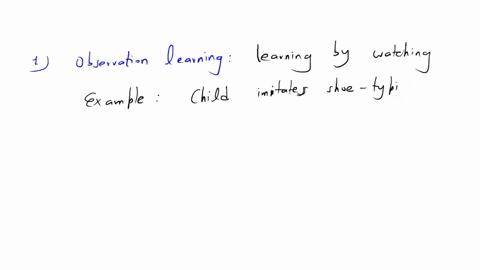 1) Observation learning: learning by watching
Example: Child imitates shoe-typi